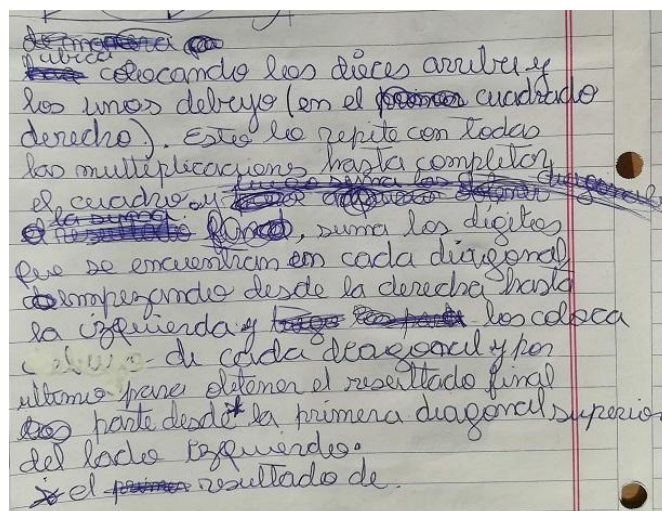 de manera
ubica
colocando los dieces arriba y
los unos debajo (en el primer cuadrado
derecho). Esto lo repite con todas
las multiplicaciones hasta completar
el cuadro y luego suma las diagonales
la suma
el resultado, suma los dígitos
que se encuentran en cada diagonal
empezando desde la derecha hasta
la izquierda y luego los coloca
de cada diagonal y por
ultimo para obtener el resultado final
parte desde * la primera diagonal superior
del lado izquierdo.
* el primer resultado de.